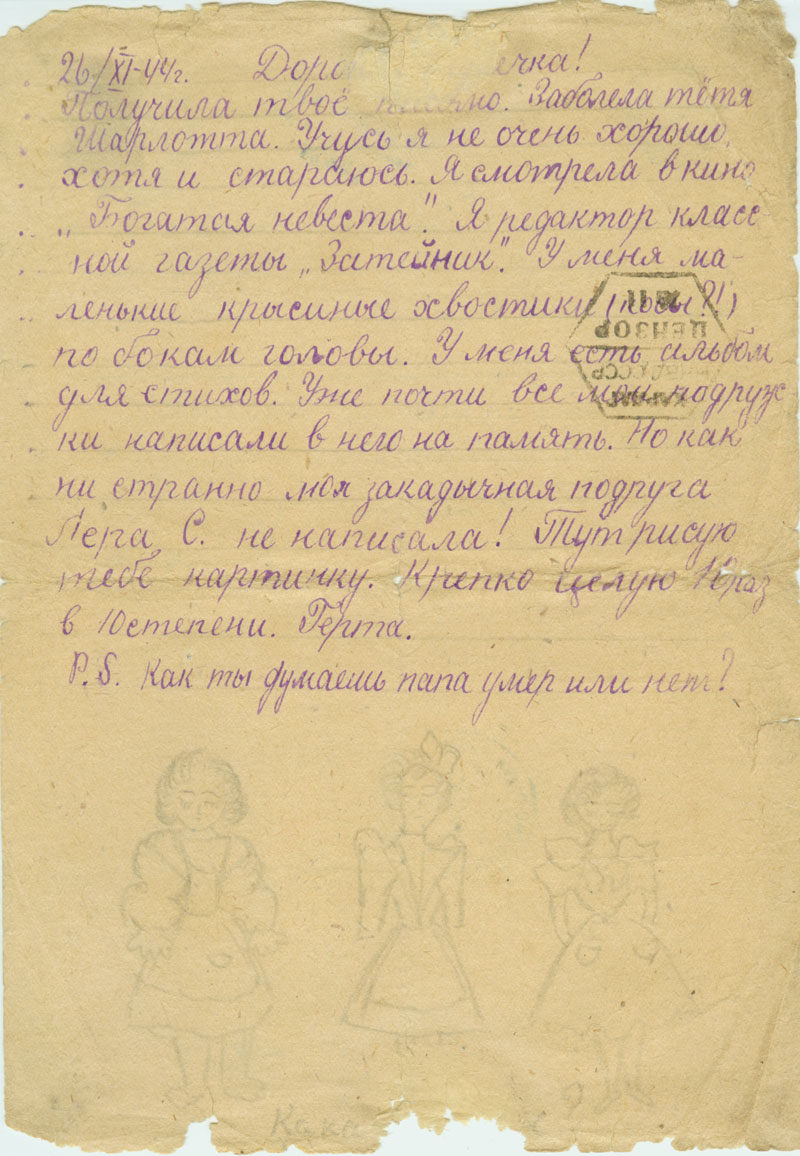 26/XI-44г. Доро ечка!
Получила твоё. Заболела тётя
Шарлотта. Учусь я не очень хорошо,
хотя и стараюсь. Я смотрела в кино
„Богатая невеста". Я редактор класс
ной газеты „Затейник". У меня ма-
ленькие крысиные хвостики (косы?!)
по бокам головы. У меня есть альбом
для стихов. Уже почти все мои подруж
ки написали в него на память. Но как
ни странно моя закадычная подруга
Лера С. не написала! Тут рисую
тебе картинку. Крепко целую 10 раз
в 10 степени. Герта.
P.S. Как ты думаешь папа умер или нет?
ЦЕНЗОР